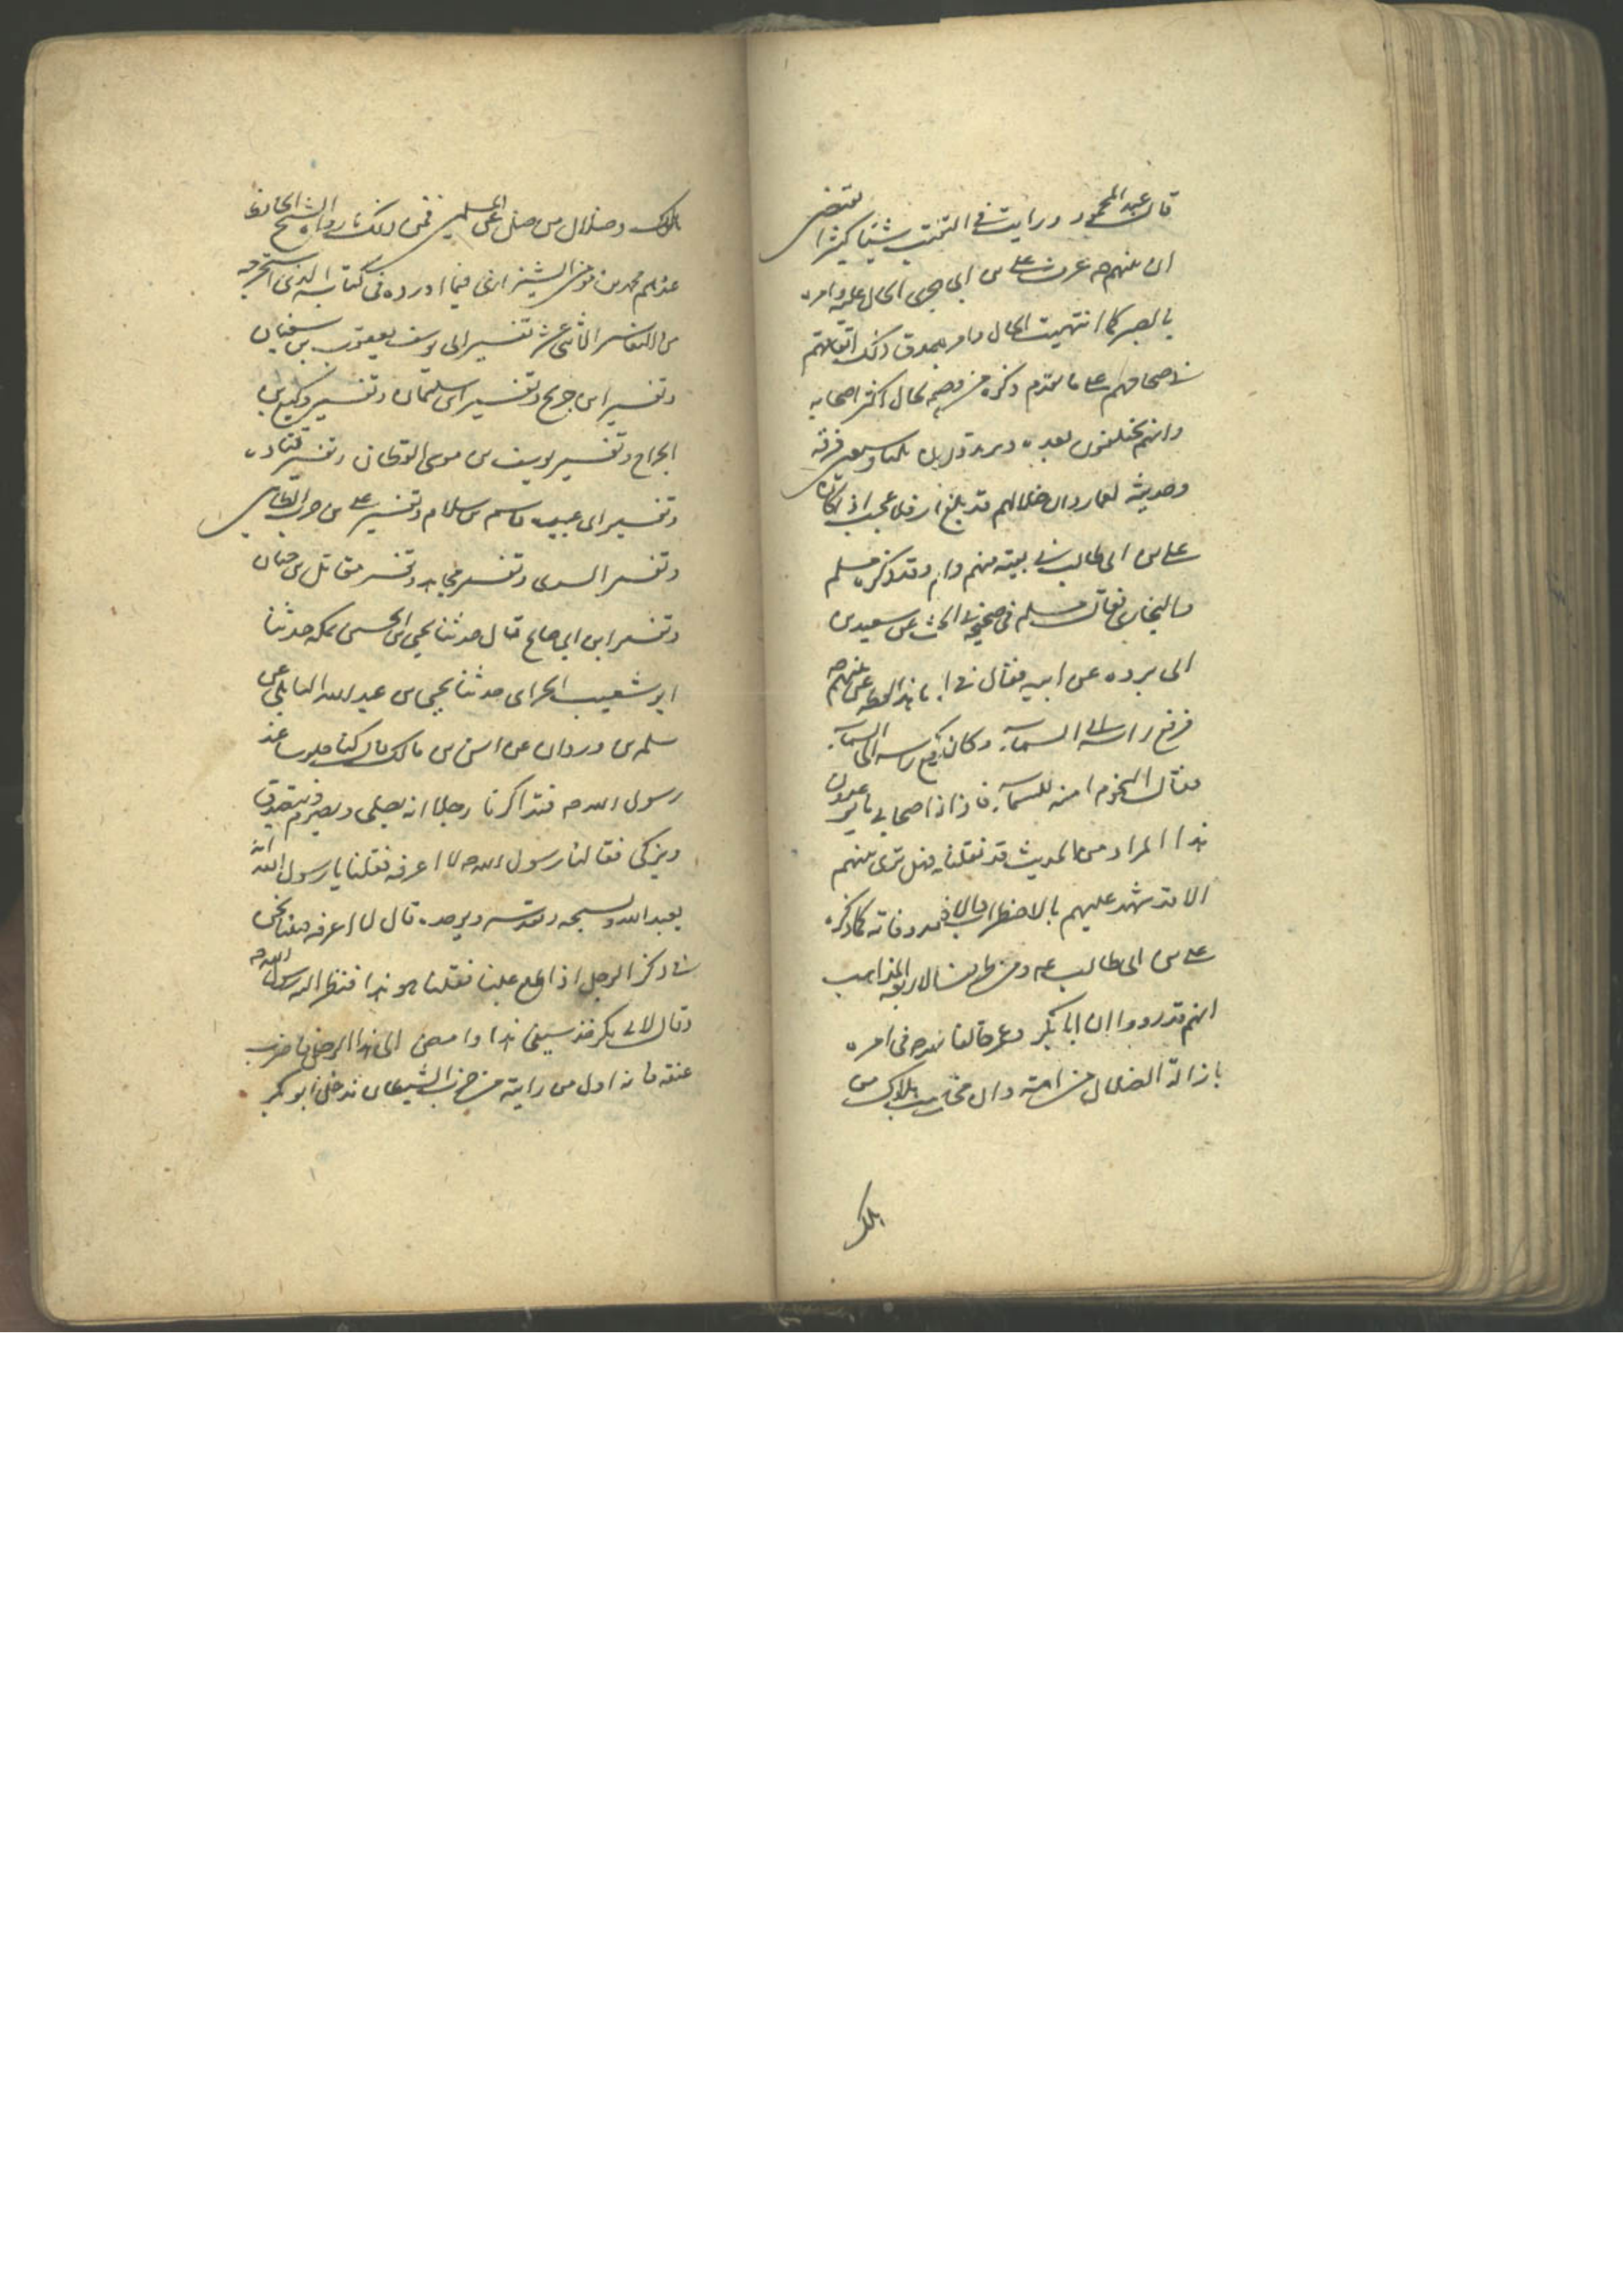 قال عبد المحمود ورايت في الكتب شيئا كثيرا يقتضى
ان نبيهم ص عرف على بن ابي يجرى الحال عليه وامره
بالصبر كما انتهيت الحال وامر يصدق ذلك اتفاقهم
في صحاحهم على ما تقدم ذكره من وصفه لحال اكثر اصحابه
وانهم يختلفون بعده فرقة
وحديثه لعمار وان ضلالهم قد بلغ
على بن ابى طالب في بيته منهم وقد ذكره مسلم
والبخارى فقال مسلم في صحيحه في الحديث عن سعيد بن
ابى برده عن ابيه فقال في
فرفع راسه الى السماء وكان يرفع راسه الى السماء
فقال النجوم امنة للسماء فاذا اصحابى ما يوعدون
هذا المراد من الحديث قد نقلناه فهل ترى نبيهم
الا قد شهد عليهم بالاختلاف بعد وفاته كما ذكره
على بن ابى طالب ع ومن الاربعة المذاهب
انهم قد رووا ان ابا بكر وعمر خالفا نبيهم في امره
بازالة الضلال من امته وان هلاك من
هلك
هلك وضلال من ضل من المسلمين فمن ذلك ما رواه الشيخ الحافظ
عندهم محمد بن موسى الشيرازى فيما اورده في كتابه الذى استخرجه
من التفاسير الاثنى عشر تفسير ابى يوسف يعقوب بن سفيان
وتفسير ابن جريح وتفسير ابن سليمان وتفسير وكيع بن
الجراح وتفسير يوسف بن موسى القطان وتفسير قتاده
وتفسير ابى عبيده قاسم بن سلام وتفسير على بن حرب الطائى
وتفسير السدى وتفسير مجاهد وتفسير مقاتل بن حيان
وتفسير ابن ابي صالح قال حدثنا يحيى بن الحسن بمكه حدثنا
ابو شعيب الحرانى حدثنا يحيى بن عبد الله البابلى عن
سلمه بن وردان عن انس بن مالك قال كنا جلوسا عند
رسول الله ص فتذاكرنا رجلا انه يصلى ويصوم ويتصدق
ويزكى فقال لنا رسول الله ص لا اعرفه فقلنا يا رسول الله انه
يعبد الله ويسبحه ويقدسه ويوحده قال لا اعرفه فبينا نحن
في ذكر الرجل اذ اطلع علينا فقلنا هو هذا فنظر اليه رسول الله ص
وقال لابى بكر خذ سيفى هذا وامض الى هذا الرجل فاضرب
عنقه فانه اول من رايته من حزب الشيطان فدخل ابو بكر